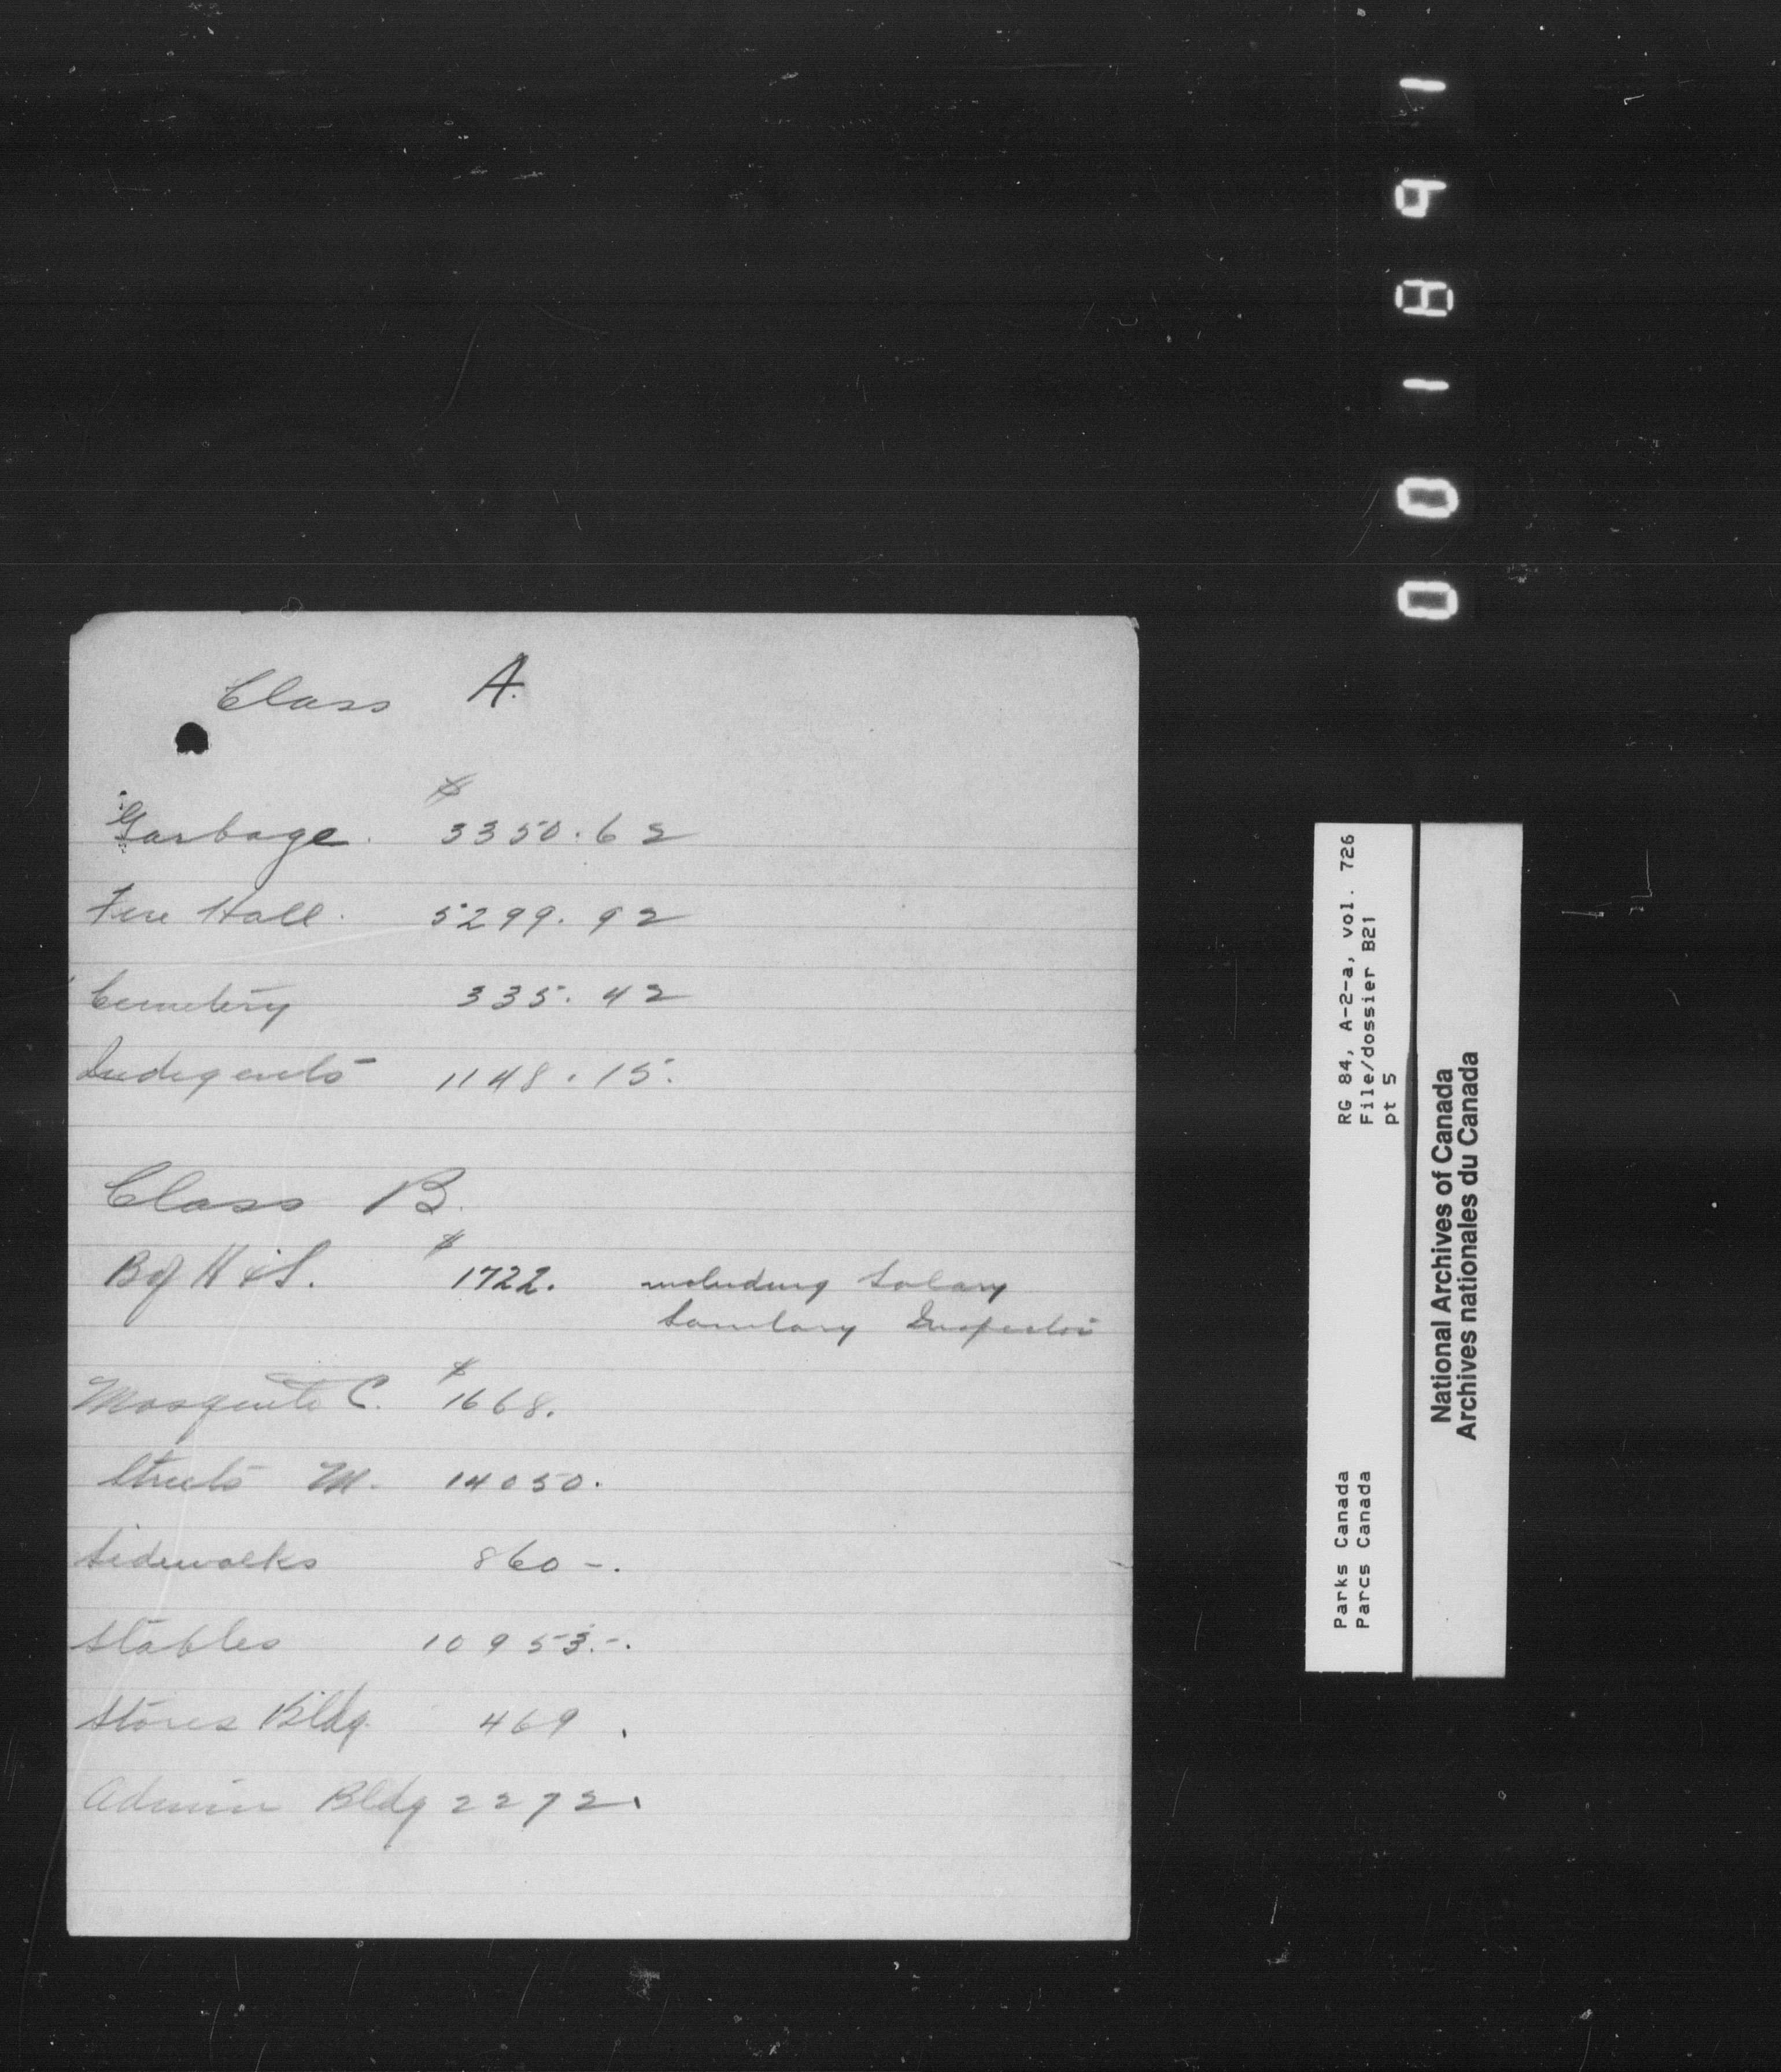 Class A.
$
Garbage. 3350.62
Fire Hall. 5299.92
Cemetery 335.42
Indigents 1148.15.
Class B.
$
B of H & S. 1722. including Salary
Sanitary Inspector
$
Mosquito C. 1668.
Streets M. 14050.
Sidewalks 860-.
Stables 10953.-.
Stores Bldg. 469.
Admin Bldg 2272.
001891
RG 84, A-2-a, vol. 726
File/dossier B21
pt 5
Parks Canada
Parcs Canada
National Archives of Canada
Archives nationales du Canada